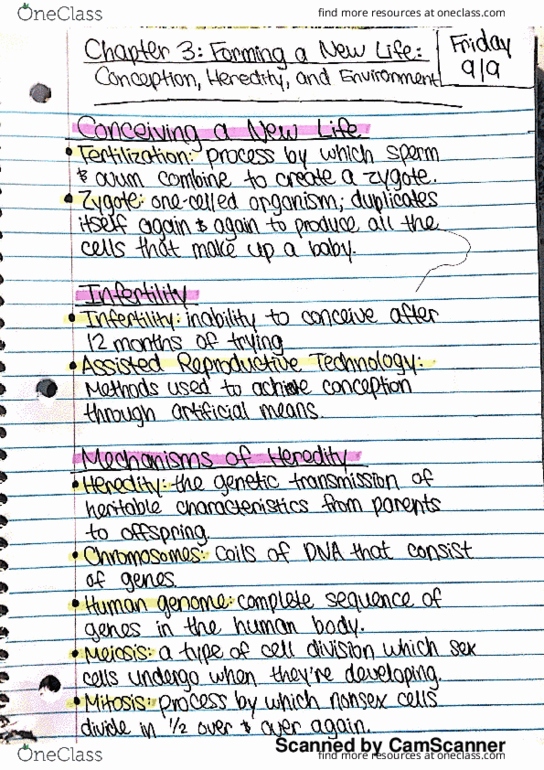 OneClass find more resources at oneclass.com
Chapter 3: Forming a New Life:
Conception, Heredity, and Environment
Friday
9/9
Conceiving a New Life
• Fertilization: process by which sperm
& ovum combine to create a zygote.
• Zygote: one-celled organism; duplicates
itself again & again to produce all the
cells that make up a baby.
Infertility
• Infertility: inability to conceive after
12 months of trying
• Assisted Reproductive Technology:
Methods used to achieve conception
through artificial means.
Mechanisms of Heredity
• Heredity: the genetic transmission of
heritable characteristics from parents
to offspring.
• Chromosomes: Coils of DNA that consist
of genes
• Human genome: complete sequence of
genes in the human body.
• Meiosis: a type of cell division which sex
cells undergo when they're developing.
• Mitosis: process by which nonsex cells
divide in 1/2 over & over again.
Scanned by CamScanner
OneClass find more resources at oneclass.com